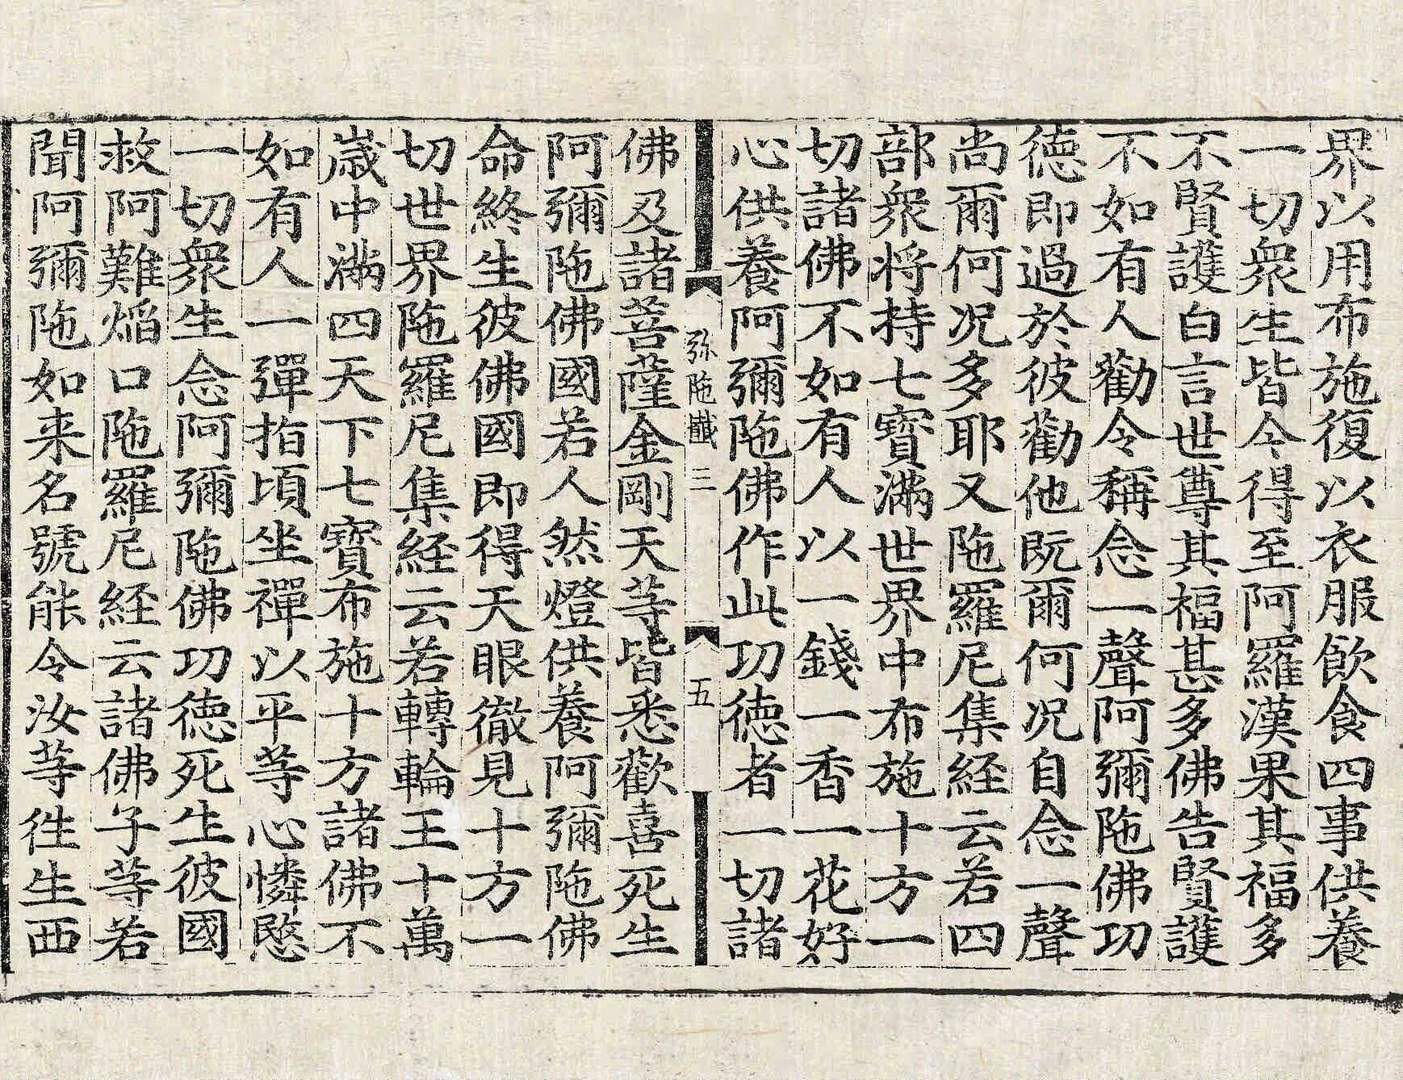 界以用布施復以衣服飲食四事供養
一切衆生皆令得至阿羅漢果其福多
不賢護白言世尊其福甚多佛告賢護
不如有人勸令稱念一聲阿彌陁佛功
德即過於彼勸他旣爾何况自念一聲
尚爾何况多耶又陁羅尼集経云若四
部衆将持七寳滿世界中布施十方一
切諸佛不如有人以一錢一香一花好
心供養阿彌陁佛作此功德者一切諸
弥陁懴三
五
佛及諸菩薩金剛天䓁皆悉歡喜死生
阿彌陁佛國若人然燈供養阿彌陁佛
命終生彼佛國即得天眼徹見十方一
切世界陁羅尼集経云若轉輪王十萬
歳中滿四天下七寳布施十方諸佛不
如有人一彈指頃坐禪以平䓁心憐愍
一切衆生念阿彌陁佛功德死生彼國
救阿難熖口陁羅尼経云諸佛子䓁若
聞阿彌陁如来名號能令汝䓁徃生西